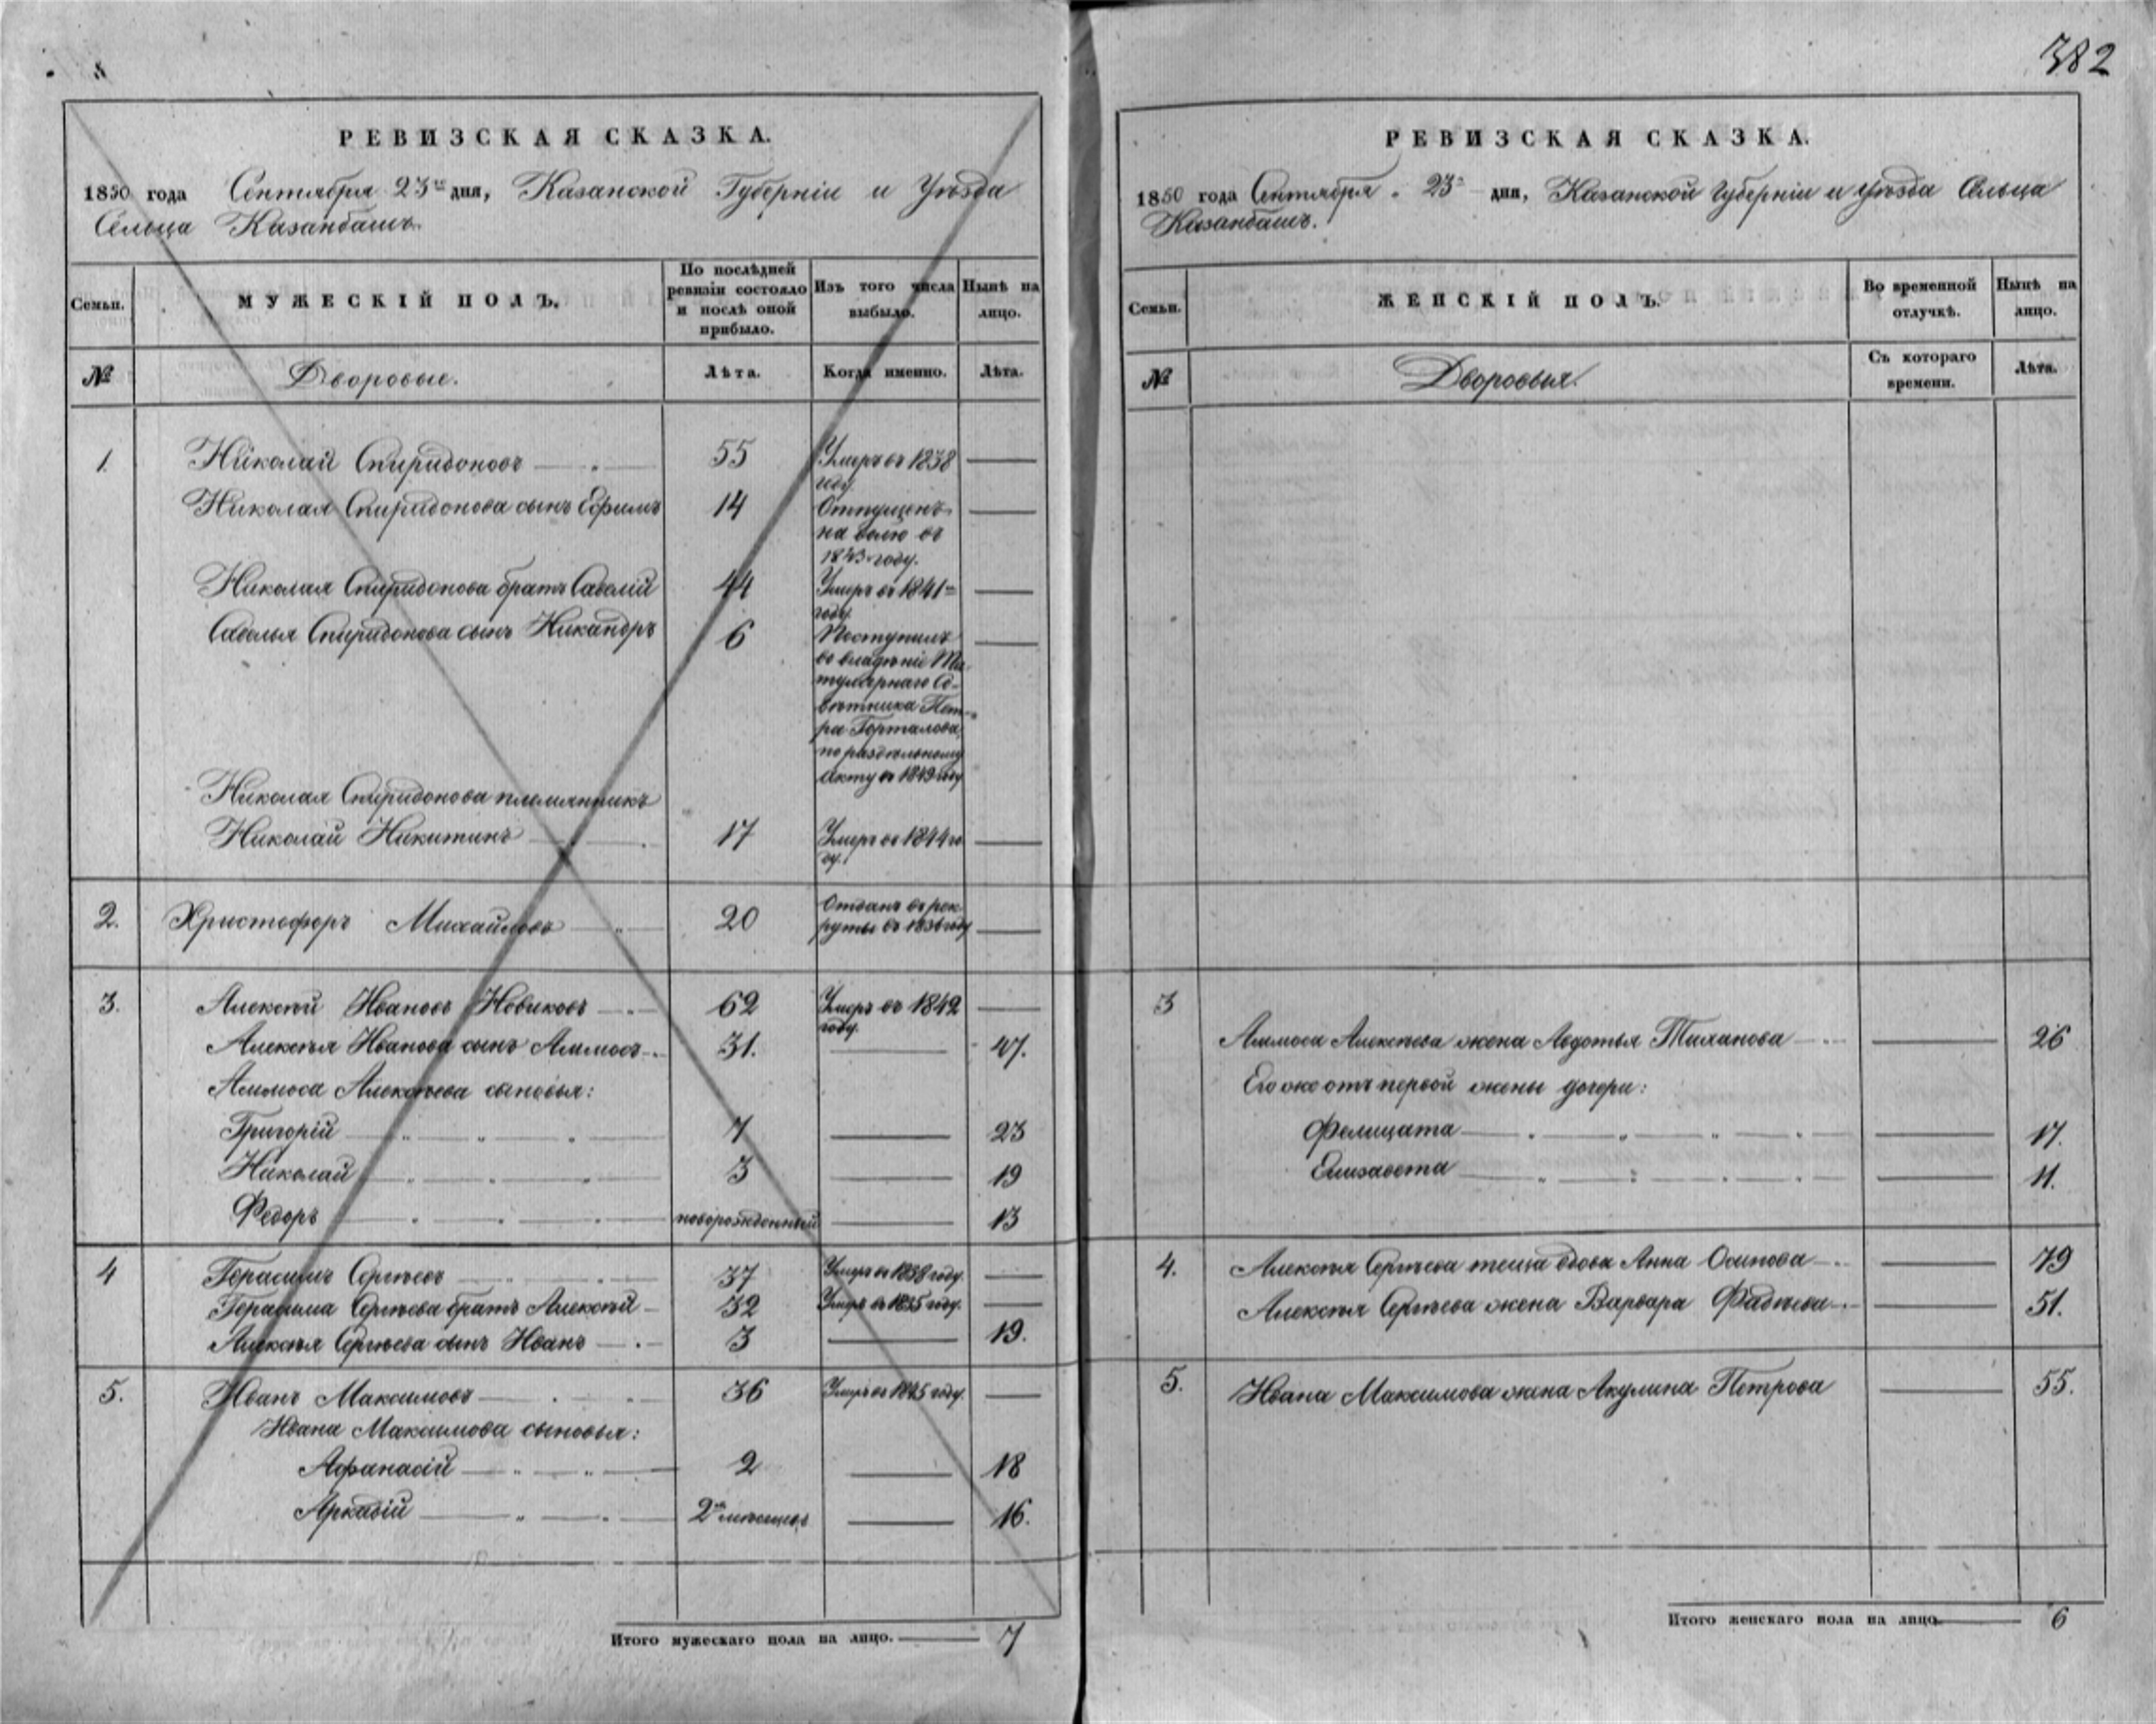 382
РЕВИЗСКАЯ СКАЗКА.
1850 года Сентября 23го дня, Казанской Губерніи и Уѣзда
Сельца Казанбашъ.
Семьи.
МУЖЕСКІЙ ПОЛЪ.
По послѣдней
ревизіи состояло
и послѣ оной
прибыло.
Изъ того числа
выбыло.
Нынѣ на
лицо.
№
Дворовые.
Лѣта.
Когда именно.
Лѣта.
1. Николай Спиридоновъ 55 Умеръ въ 1838
году.
Николая Спиридонова сынъ Ефимъ 14 Отпущенъ
на волю въ
1843 году.
Николая Спиридонова братъ Савелій 44 Умеръ въ 1841
году.
Савелья Спиридонова сынъ Никандръ 6 Поступилъ
во владѣніе Ти-
тулярнаго Со-
вѣтника Пет-
ра Горталова,
по раздѣльному
акту въ 1849 году
Николая Спиридонова племянникъ
Николай Никитинъ 17 Умеръ въ 1844 го
ду.
2. Христофоръ Михайловъ 20 Отданъ въ рек-
руты въ 1836 году
3. Алексѣй Ивановъ Новиковъ 62 Умеръ въ 1842
году.
Алексѣя Иванова сынъ Амплосъ 31. 47.
Алексѣева сыновья:
Григорій 7 23
Николай 3 19
Федоръ новорожденный 13
4 Герасимъ Сергѣевъ 37 Умеръ въ 1838 году.
Герасима Сергѣева братъ Алексѣй 32 Умеръ въ 1835 году.
Алексѣя Сергѣева сынъ Иванъ 3 19.
5. Иванъ Максимовъ 36 Умеръ въ 1845 году.
Ивана Максимова сыновья:
Афанасій 2 18
Аркадій 2хъ мѣсяцевъ 16.
Итого мужескаго пола на лицо. 7
РЕВИЗСКАЯ СКАЗКА.
1850 года Сентября 23 дня, Казанской Губерніи и Уѣзда Сельца
Казанбашъ.
Семьи.
ЖЕНСКІЙ ПОЛЪ.
Во временной
отлучкѣ.
Нынѣ на
лицо.
№
Дворовыя.
Съ котораго
времени.
Лѣта.
3
Алексѣева жена Авдотья Тиханова 26
Его же отъ первой жены дочери:
Фелицата 17.
Елизавета 11.
4. Алексѣя Сергѣева теща вдова Анна Осипова 79
Алексѣя Сергѣева жена Варвара Фадѣева 51.
5. Ивана Максимова жена Акулина Петрова 55.
Итого женскаго пола на лицо 6